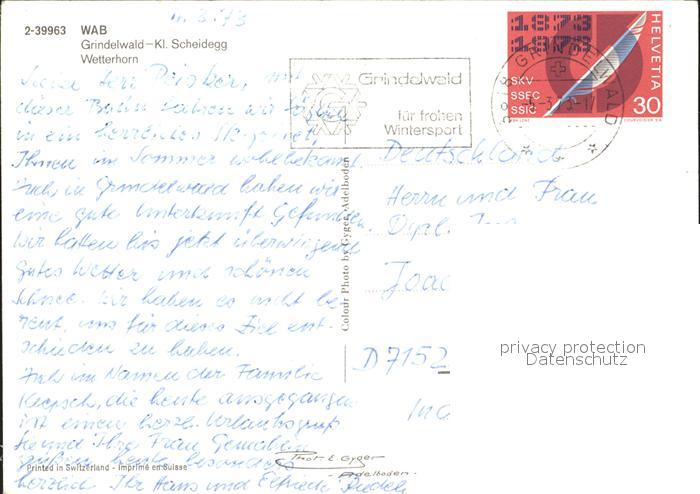 m. 3.73
2-39963 WAB
Grindelwald – Kl. Scheidegg
Wetterhorn
Grindelwald
für frohen
Wintersport
1873
1973
SKV
SSEC
SSIC
HELVETIA
30
GRINDELWALD
dieser Bahn fahren wir
in ein herrliches
Ihnen im Sommer wohlbekannt.
Auch in Grindelwald haben wir
eine gute Unterkunft Gefunden.
Wir hatten bis jetzt überwiegend
Gutes Wetter und schönen
Schnee. Wir haben es nicht be-
reut, uns für dieses Ziel ent-
schieden zu haben.
Auch im Namen der Familie
die heute ausgegangen
ist einen herzl. Urlaubsgruß
Ihre Frau Gemahlin
grüßen heute besonders
herzlich Ihr Hans und Elfriede
Deutschland
Herrn und Frau
Dipl.
Joac
D 7152
Colour Photo by Gyger, Adelboden
privacy protection
Datenschutz
Printed in Switzerland - Imprimé en Suisse
Phot E. Gyger
- Adelboden -